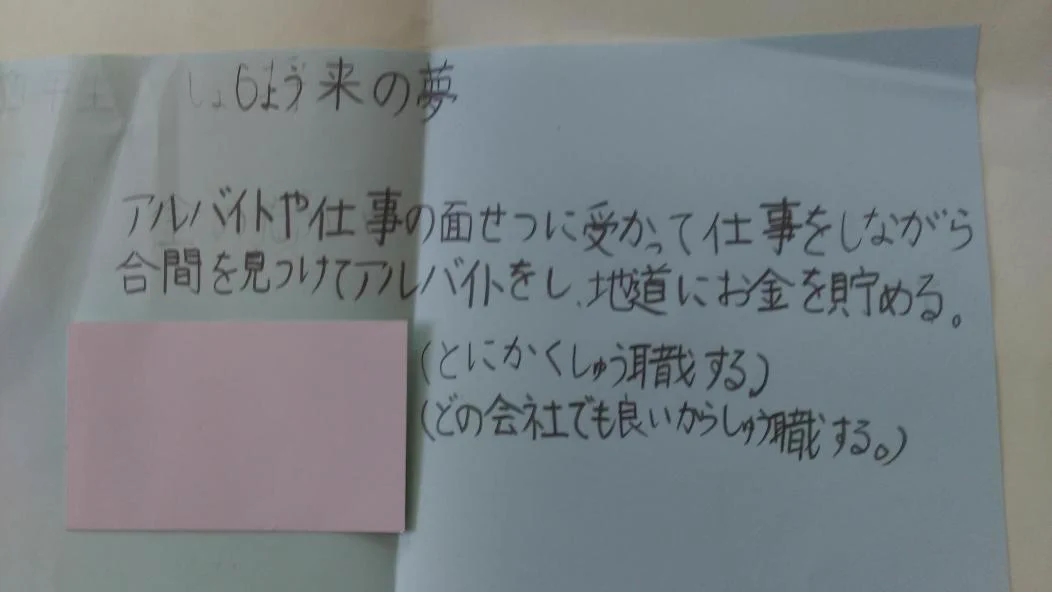 しょう来の夢
アルバイトや仕事の面せつに受かって仕事をしながら
合間を見つけてアルバイトをし、地道にお金を貯める。
(とにかくしゅう職する。)
(どの会社でも良いからしゅう職する。)